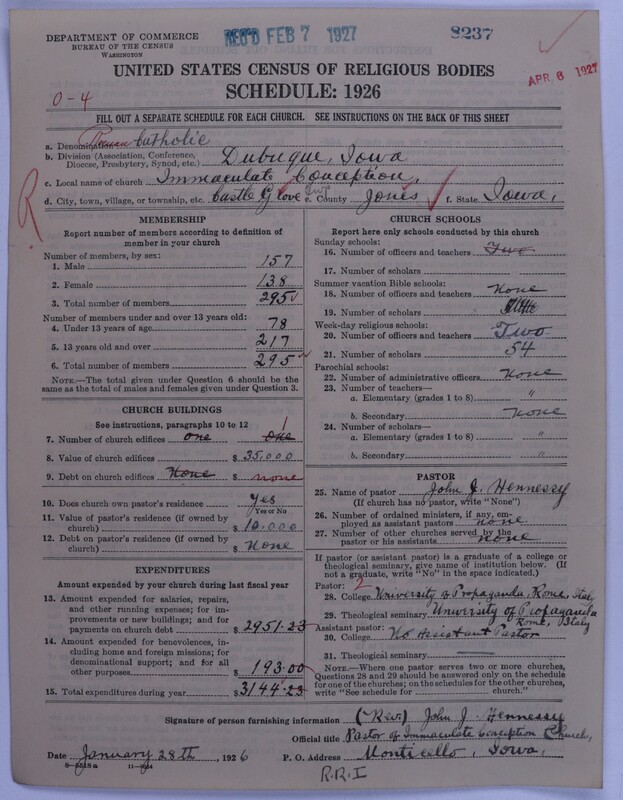 DEPARTMENT OF COMMERCE
BUREAU OF THE CENSUS
WASHINGTON
REC'D FEB 7 1927
8237
APR 6 1927
UNITED STATES CENSUS OF RELIGIOUS BODIES
SCHEDULE: 1926
0-4
FILL OUT A SEPARATE SCHEDULE FOR EACH CHURCH. SEE INSTRUCTIONS ON THE BACK OF THIS SHEET
a. Denomination Roman Catholic
b. Division (Association, Conference, Diocese, Presbytery, Synod, etc.) Dubuque, Iowa
c. Local name of church Immaculate Conception,
d. City, town, village, or township, etc. Castle Grove Twp e. County Jones f. State Iowa,
R
MEMBERSHIP
Report number of members according to definition of
member in your church
Number of members, by sex:
1. Male 157
2. Female 138
3. Total number of members 295
Number of members under and over 13 years old:
4. Under 13 years of age 78
5. 13 years old and over 217
6. Total number of members 295
NOTE.—The total given under Question 6 should be the
same as the total of males and females given under Question 3.
CHURCH BUILDINGS
See instructions, paragraphs 10 to 12
7. Number of church edifices one One 1
8. Value of church edifices $ 35,000
9. Debt on church edifices None $ none
10. Does church own pastor's residence Yes
Yes or No
11. Value of pastor's residence (if owned by
church) $ 10,000
12. Debt on pastor's residence (if owned by
church) $ None
EXPENDITURES
Amount expended by your church during last fiscal year
13. Amount expended for salaries, repairs,
and other running expenses; for im-
provements or new buildings; and for
payments on church debt $ 2951.23
14. Amount expended for benevolences,
including home and foreign missions; for
denominational support; and for all
other purposes 193.00
15. Total expenditures during year $ 3144.23
CHURCH SCHOOLS
Report here only schools conducted by this church
Sunday schools:
16. Number of officers and teachers Two
17. Number of scholars
Summer vacation Bible schools:
18. Number of officers and teachers None
19. Number of scholars
Week-day religious schools:
20. Number of officers and teachers Two
21. Number of scholars 54
Parochial schools:
22. Number of administrative officers None
23. Number of teachers—
a. Elementary (grades 1 to 8) "
b. Secondary None
24. Number of scholars—
a. Elementary (grades 1 to 8) "
b. Secondary "
PASTOR
25. Name of pastor John J. Hennessy
(If church has no pastor, write "None")
26. Number of ordained ministers, if any, em-
ployed as assistant pastors none
27. Number of other churches served by the
pastor or his assistants none
If pastor (or assistant pastor) is a graduate of a college or
theological seminary, give name of institution below. (If
not a graduate, write "No" in the space indicated.)
Pastor: 2
28. College University of Propaganda, Rome, Italy
29. Theological seminary University of Propaganda
Rome, Italy
Assistant pastor:
30. College No Assistant Pastor
31. Theological seminary
NOTE.—Where one pastor serves two or more churches,
Questions 28 and 29 should be answered only on the schedule
for one of the churches; on the schedules for the other churches,
write "See schedule for church."
Signature of person furnishing information (Rev.) John J. Hennessy
Official title Pastor of Immaculate Conception Church,
Date January 28th, 1926 P. O. Address Monticello, Iowa,
R.R.1